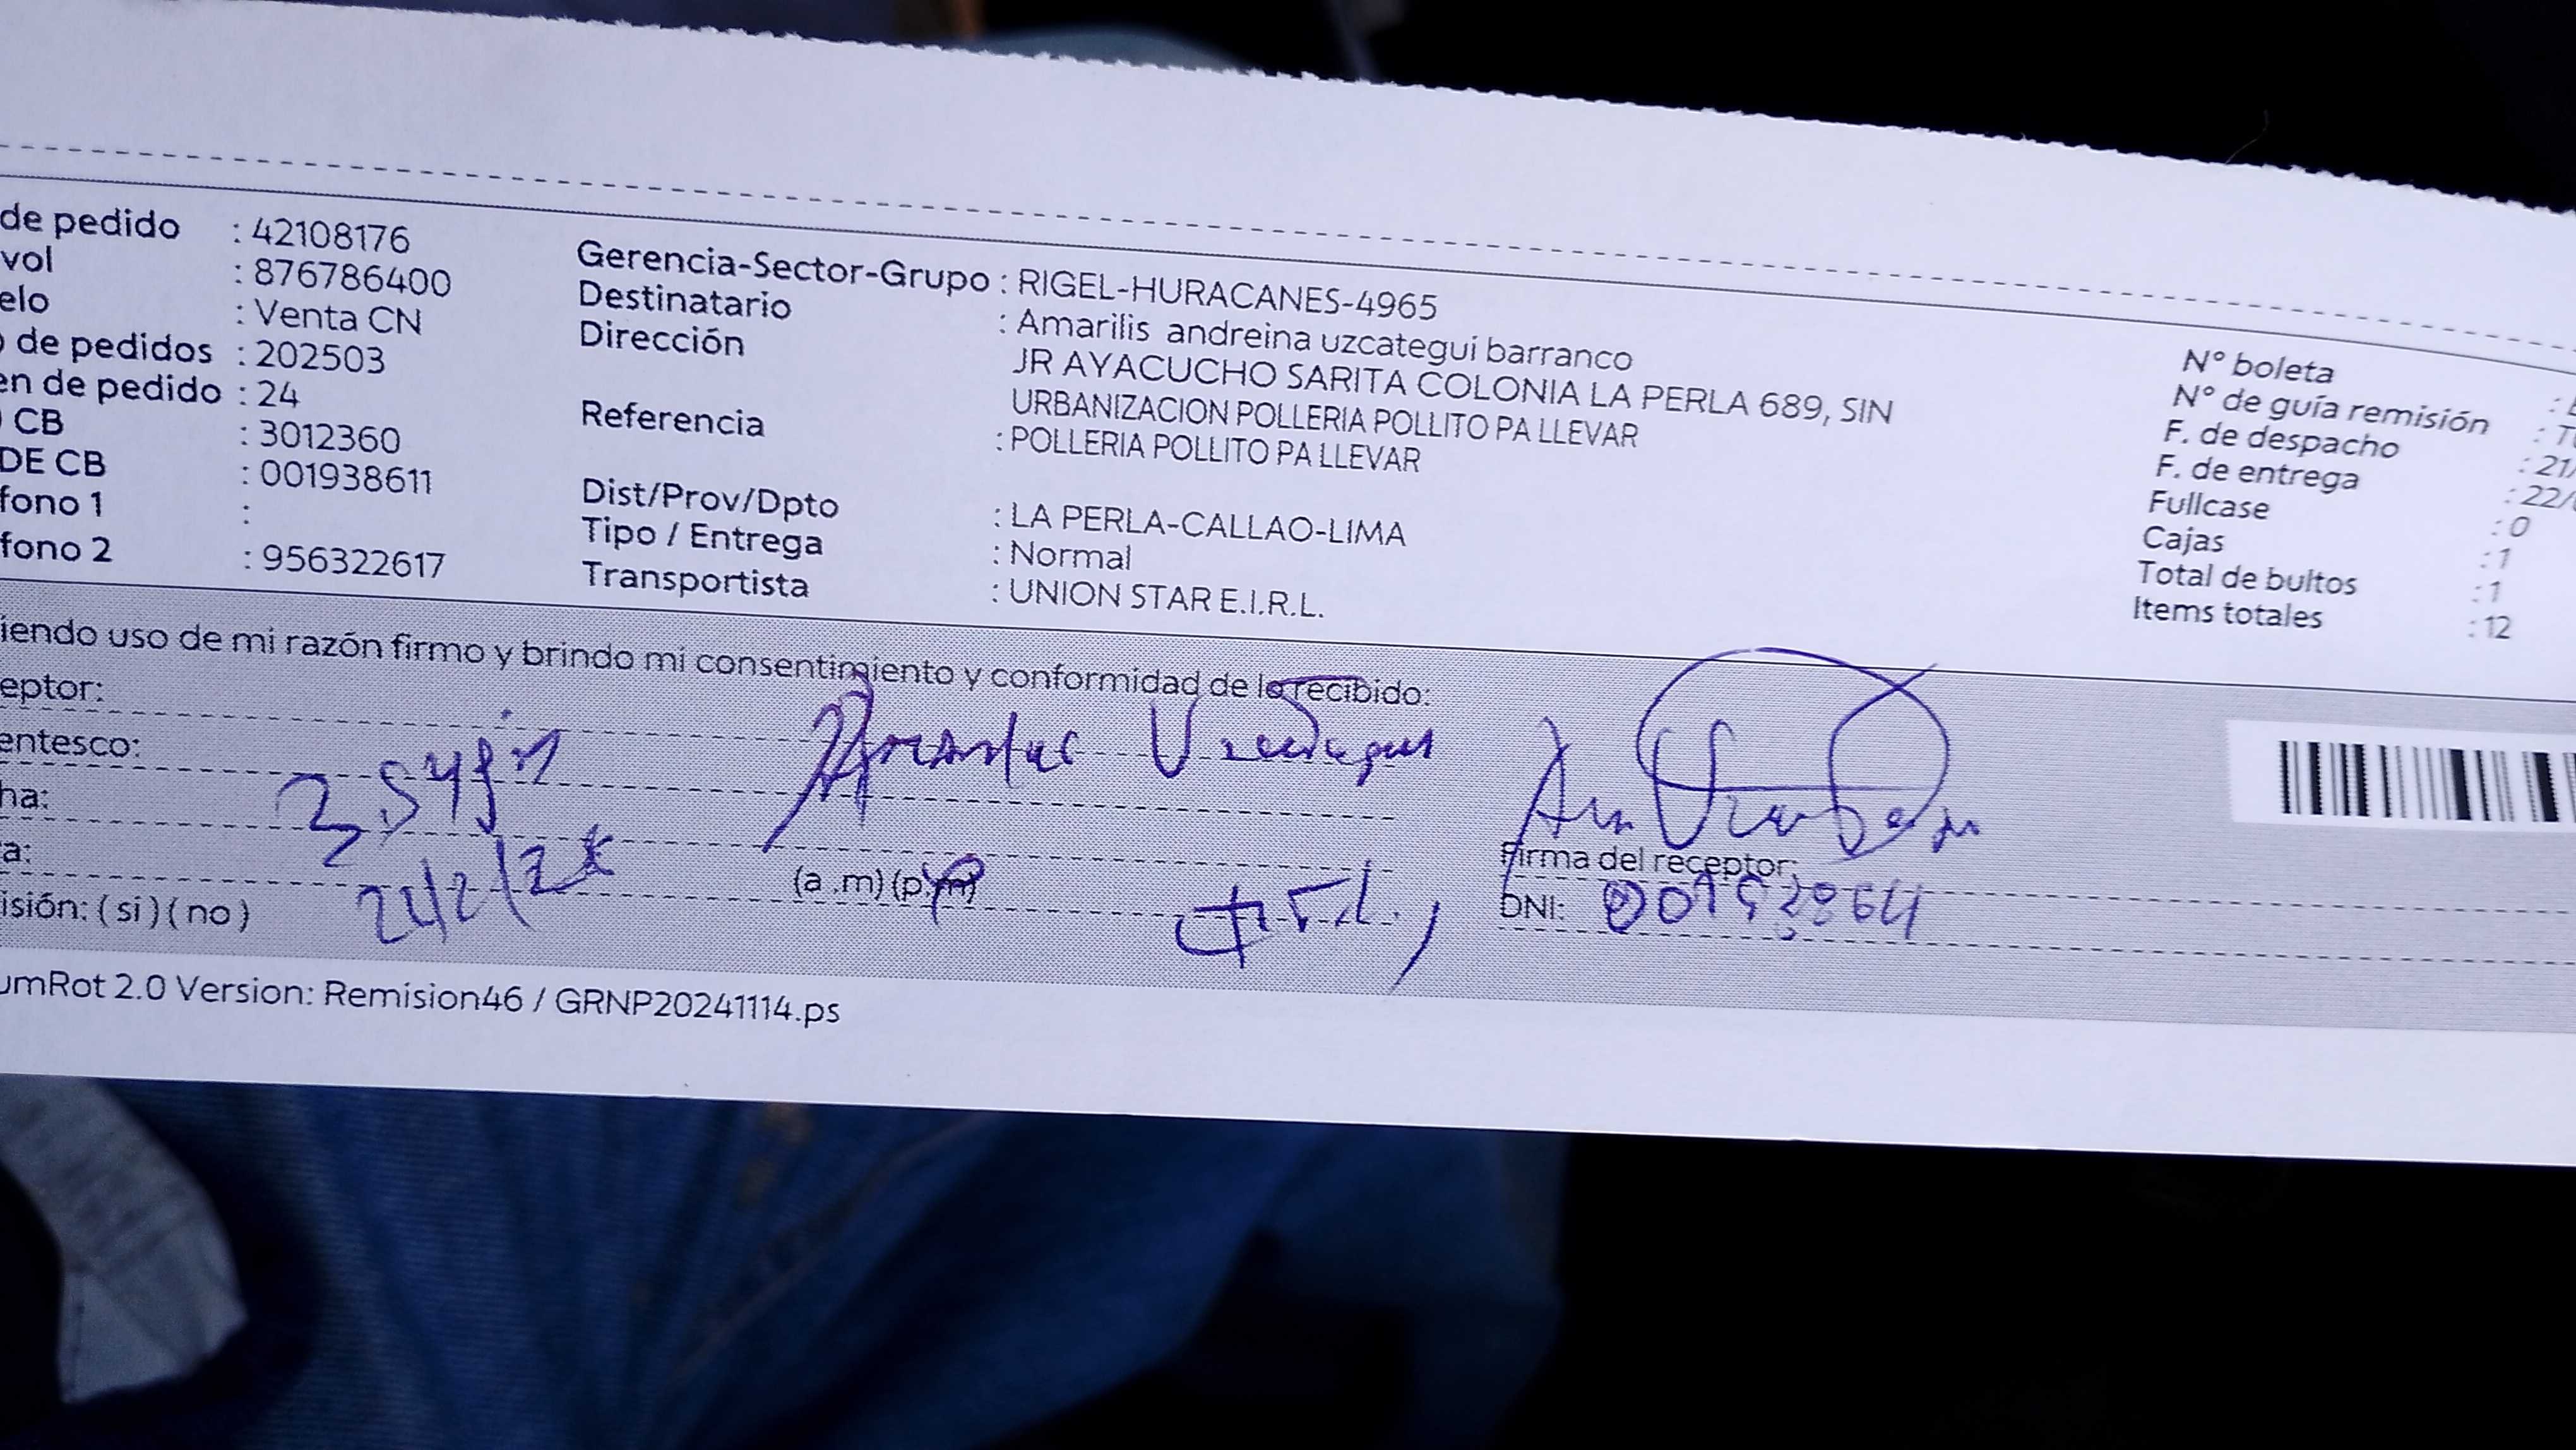 de pedido : 42108176
vol : 876786400
elo : Venta CN
de pedidos : 202503
en de pedido : 24
CB : 3012360
DE CB : 001938611
fono 1 :
fono 2 : 956322617
Gerencia-Sector-Grupo : RIGEL-HURACANES-4965
Destinatario : Amarilis andreina uzcategui barranco
Dirección JR AYACUCHO SARITA COLONIA LA PERLA 689, SIN
URBANIZACION POLLERIA POLLITO PA LLEVAR
Referencia : POLLERIA POLLITO PA LLEVAR
Dist/Prov/Dpto : LA PERLA-CALLAO-LIMA
Tipo / Entrega : Normal
Transportista : UNION STAR E.I.R.L.
N° boleta :
N° de guía remisión :
F. de despacho : 21/
F. de entrega : 22/
Fullcase : 0
Cajas : 1
Total de bultos : 1
Items totales : 12
iendo uso de mi razón firmo y brindo mi consentimiento y conformidad de lo recibido:
eptor:
entesco:
ha:
a: (a .m) (p.m)
isión: ( si ) ( no )
Firma del receptor:
DNI:
umRot 2.0 Version: Remision46 / GRNP20241114.ps